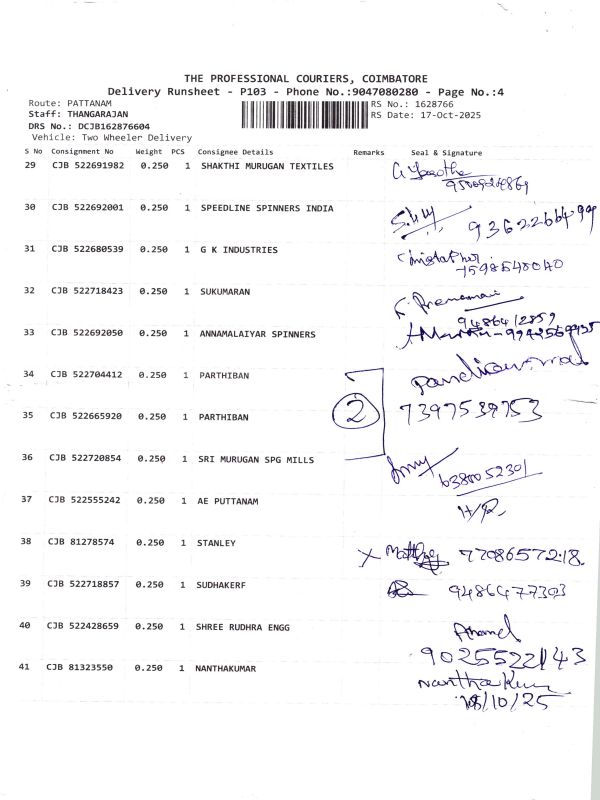 THE PROFESSIONAL COURIERS, COIMBATORE
Delivery Runsheet - P103 - Phone No.:9047080280 - Page No.:4
Route: PATTANAM RS No.: 1628766
Staff: THANGARAJAN RS Date: 17-Oct-2025
DRS No.: DCJB162876604
Vehicle: Two Wheeler Delivery
S No Consignment No Weight PCS Consignee Details Remarks Seal & Signature
29 CJB 522691982 0.250 1 SHAKTHI MURUGAN TEXTILES
30 CJB 522692001 0.250 1 SPEEDLINE SPINNERS INDIA
9362266499
31 CJB 522680539 0.250 1 G K INDUSTRIES
7598548040
32 CJB 522718423 0.250 1 SUKUMARAN
9486412859
33 CJB 522692050 0.250 1 ANNAMALAIYAR SPINNERS
34 CJB 522704412 0.250 1 PARTHIBAN
2 7397539753
35 CJB 522665920 0.250 1 PARTHIBAN
36 CJB 522720854 0.250 1 SRI MURUGAN SPG MILLS
6380052301
37 CJB 522555242 0.250 1 AE PUTTANAM
H/R
38 CJB 81278574 0.250 1 STANLEY X 7708657218
39 CJB 522718857 0.250 1 SUDHAKERF 9486477303
40 CJB 522428659 0.250 1 SHREE RUDHRA ENGG Anand
9025522143
41 CJB 81323550 0.250 1 NANTHAKUMAR Nanthakum
18/10/25